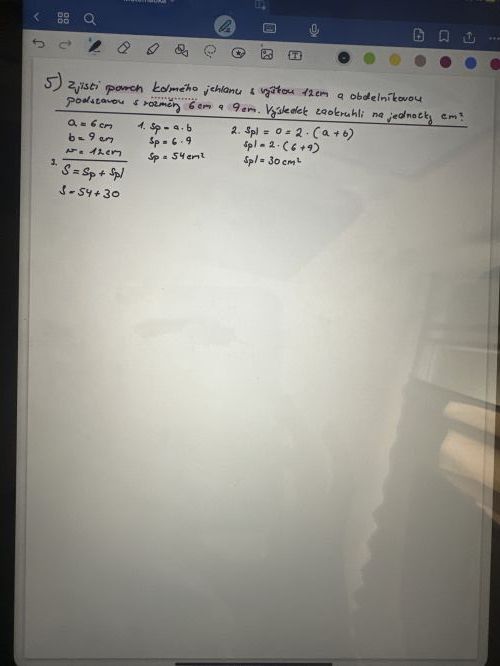 5) Zjisti povrch kolmého jehlanu s výškou 12cm a obdelníkovou
podstavou s rozměry 6cm a 9cm. Výsledek zaokrouhli na jednotky cm²
a = 6 cm
b = 9 cm
v = 12 cm
1. Sp = a · b
Sp = 6 · 9
Sp = 54 cm²
2. Spl = o = 2 · (a + b)
Spl = 2 · (6 + 9)
Spl = 30 cm²
3. S = Sp + Spl
S = 54 + 30